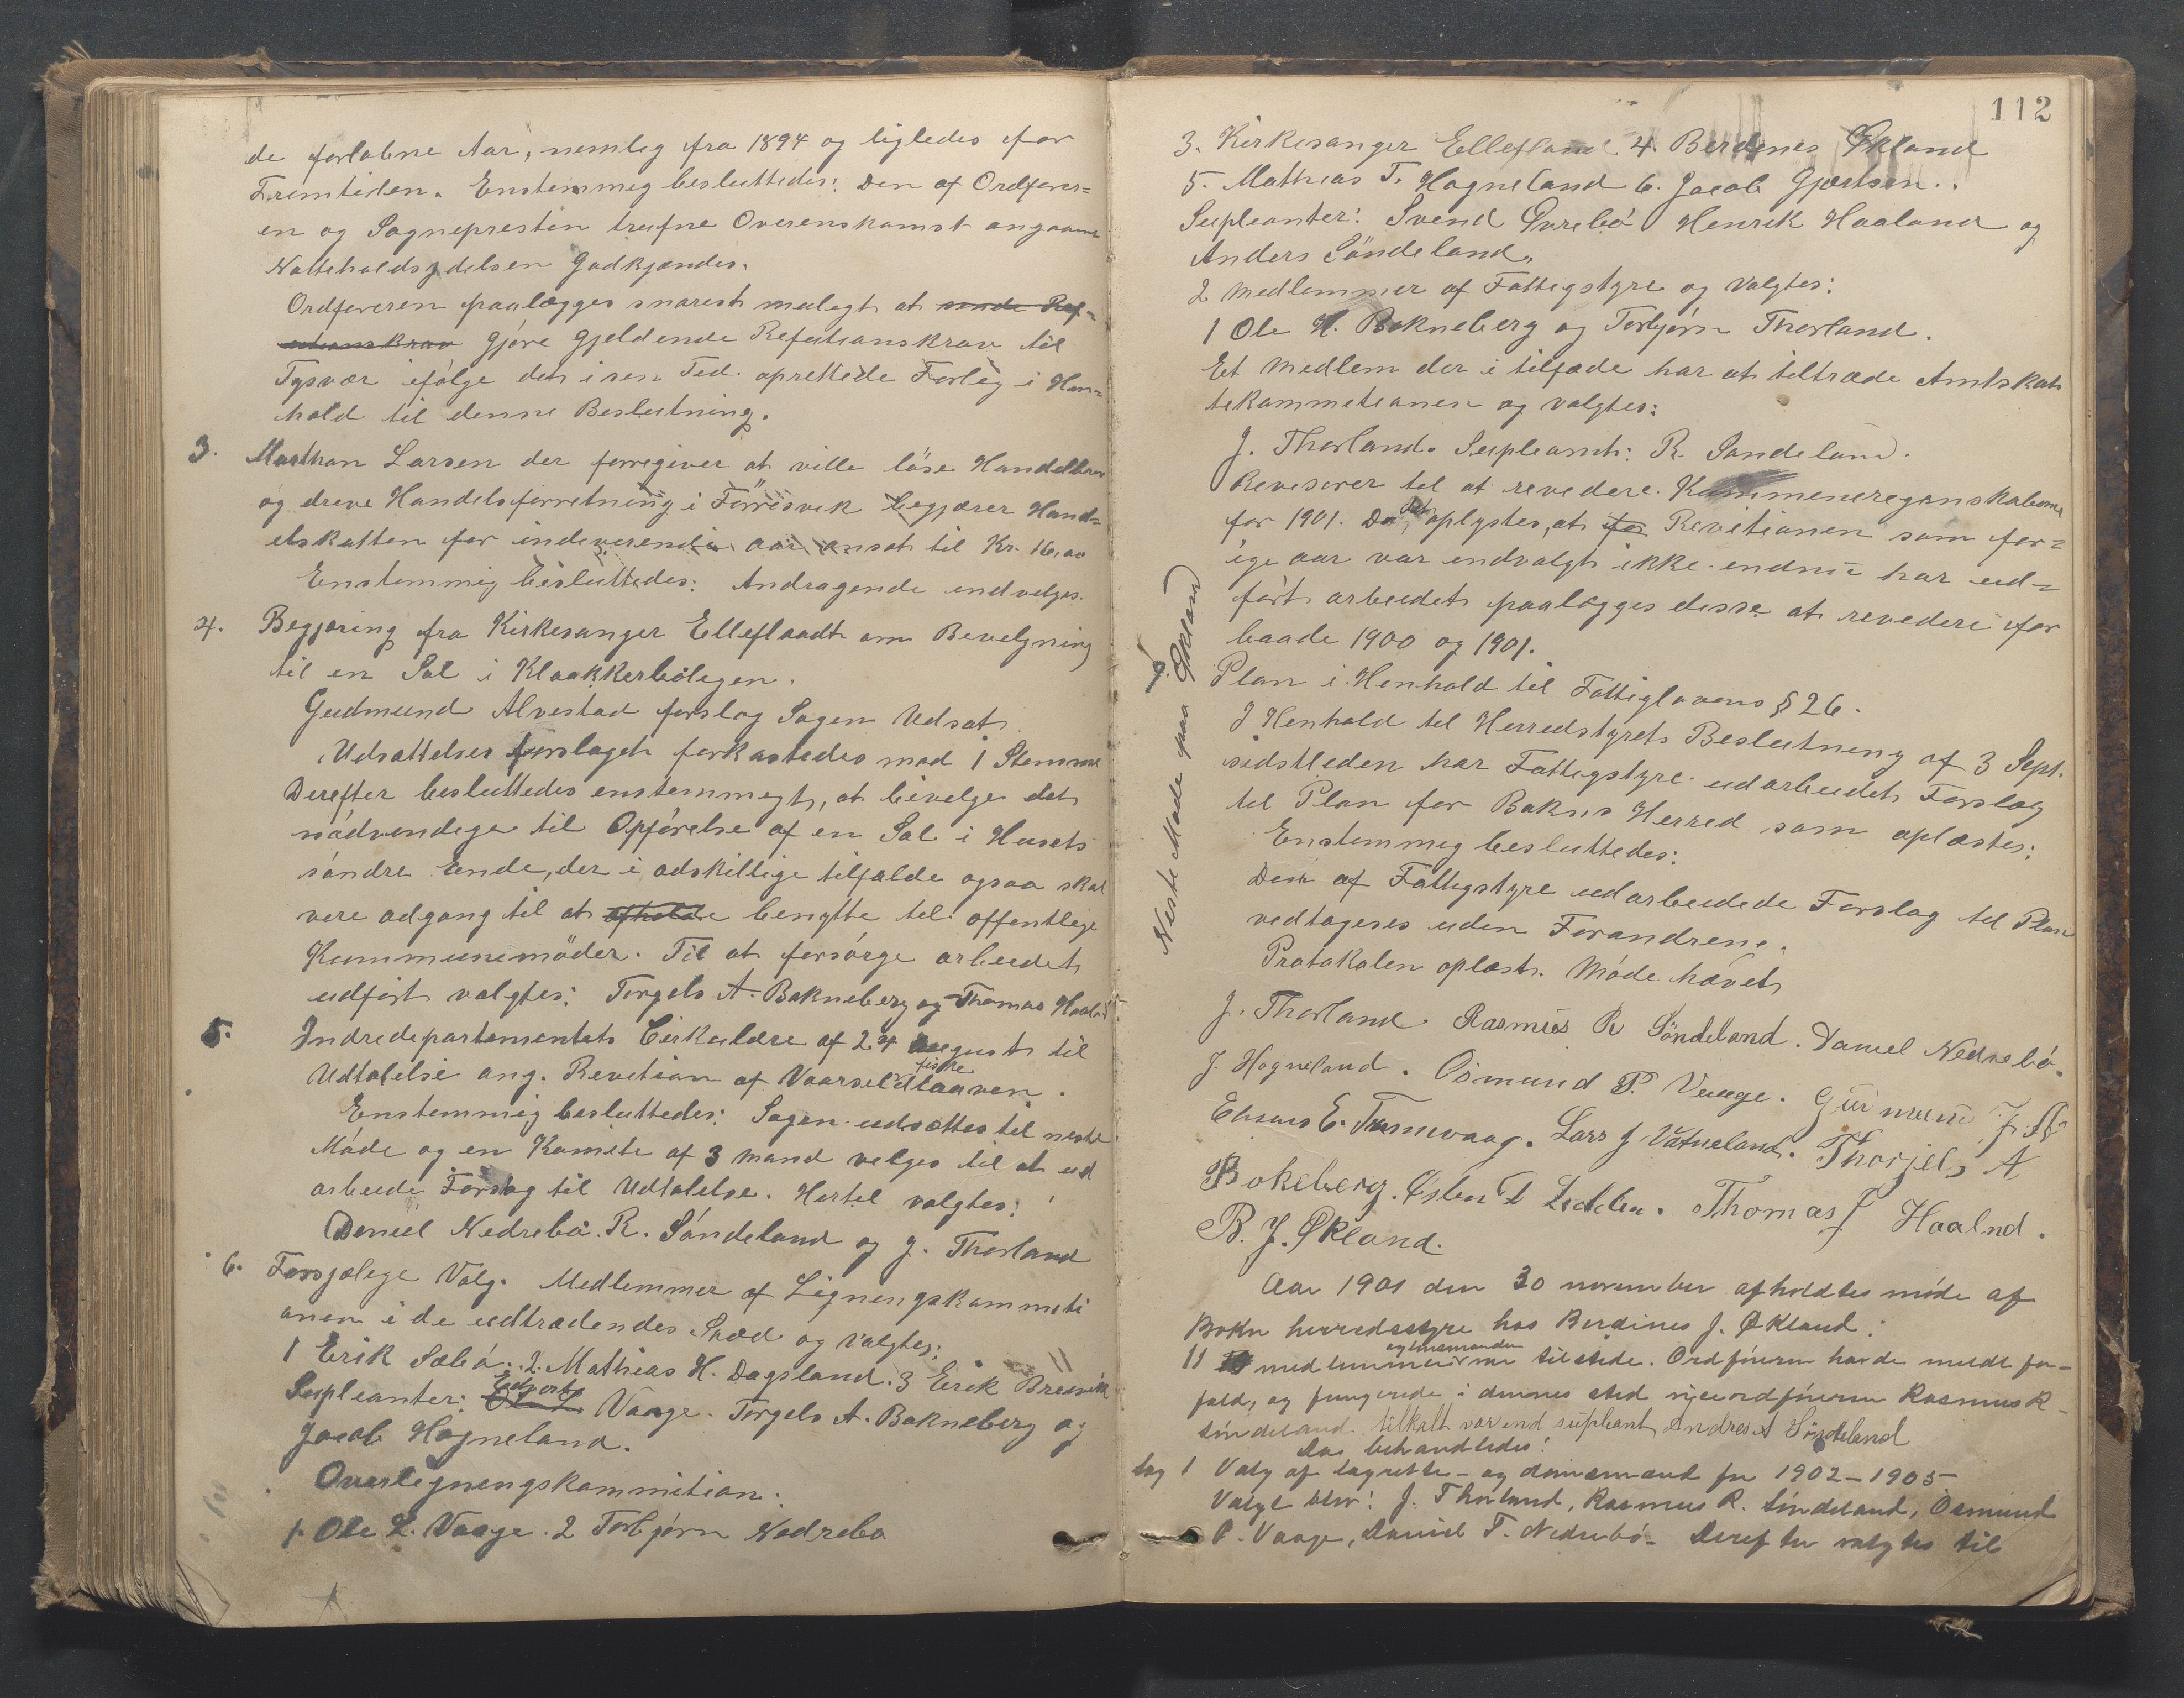 de forløbne Aar, nemlig fra 1894 og ligledes for
Fremtiden. Enstemmig besluttedes: Den af Ordfører=
en og Sognepresten trufne Overenskomst angaaende
Natteholdsydelsen Godkjændes.
Ordføreren paalægges snarest mulegt at
Gjøre Gjeldende Refutionskrav til
Tysvær ifølge den i sen Tid oprettede Forlig i Hen=
hold til denne Beslutning.
3. Marthon Larsen der foregiver at ville løse Handelbrev
og dreve Handelsforretning i Førresvik begjærer Hand=
elskatten for indeverende aar ansat til Kr. 16,00
Enstemmig besluttedes: Andragende indvelges.
4. Begjæring fra Kirkesanger Elleflaadt om Bevelgning
til en Sal i Klokkerbøligen.
Gudmund Alvestad forslog Sagen Udsat
Udsættelses forslaget forkastedes mod 1 Stemme
Derefter besluttedes enstemmegt, at bevelge det
nødvendige til Opførelse af en Sal i Husets
søndre ende, der i adskillige tilfælde ogsaa skal
vere adgang til at afholde benytte til offentlege
Kummunemøder. Til at forsørge arbeidet
udført valgtes: Torgels A. Bokneberg og Thomas Haaland
5. Indredepartementets Cirkulære af 24 august til
Udtalelse ang. Revetion af Vaarseldfiskelaaven.
Enstemmig besluttedes: Sagen udsættes til neste
Møde og en Komite af 3 Mand velges til at ud
arbeide Forslag til Udtalelse. Hertel valgtes:
Daniel Nedrebø. R. Søndeland og J. Thorland
6. Forsjælige Valg. Medlemmer af Ligningskommiti
onen i de udtrædendes Stæd og Valgtes:
1 Erik Sæbø. 2. Mathias H. Dagsland. 3 Erik Brevik
Supleanter: Edvart Vaage. Torgels A. Bokneberg og
Jacob Hogneland.
Overligningskommition:
1. Ole L. Vaage. 2 Torbjørn Nedrebø
112
3. Kirkesanger Elleflaadt 4. Berdines Økland
5. Mathias T. Hogneland 6. Jacob Gjertsen.
Supleanter: Svend Øvrebø Henrik Haaland og
Anders Søndeland.
2 Medlemmer af Fattegstyre og Valgtes:
1 Ole H. Bokneberg og Torbjørn Thorland.
Et Medlem der i tilfæde har at tiltræde Amtskat
tekommetionen og valgtes:
J. Thorland. Supleant: R. Søndeland.
Reviserer til at revedere Kommuneregnskaberne
for 1901. Da det oplystes, at for Revitionen som for=
ige aar var endvalgt ikke endnu har ud=
ført arbeidet paalægges disse at revedere for
baade 1900 og 1901.
Neste Møde paa Økland
Plan i Henhold til Fattiglovens § 26.
I Henhold til Herredstyrets Beslutning af 3 Sept.
sidstleden har Fattegstyre udarbeidet Forslag
til Plan for Bokns Herred som oplæstes:
Enstemmig besluttedes:
Den af Fattegstyre udarbeidede Forslag til Plan
vedtageses uden Forandreng.
Protokolen oplæst. Møde hævet
J. Thorland. Rasmus R Søndeland. Daniel Nedrebø.
J. Hogneland. Osmund P. Vaage. Gudmund J. A
Lars J Vatneland. Thorjels A
Bokeberg. Østen T Thomas J Haalnd.
B. J. Økland.
Aar 1901 den 30 november afholdtes møde af
Bokn herredsstyre hos Berdines J. Økland:
11 medlemmer og lensmanden var tilstede. Ordføreren havde meldt for-
fald, og fungerede i dennes sted viceordføreren Rasmus R
Søndeland tilkalt var ind supleant Andres A Søndeland
Der behandledes:
Sag 1 Valg af lagrette- og domsmænd for 1902-1905
Valgt blev: J. Thorland, Rasmus R. Søndeland, Osmund
P. Vaage, Daniel T. Nedrebø - Derefter valgtes til